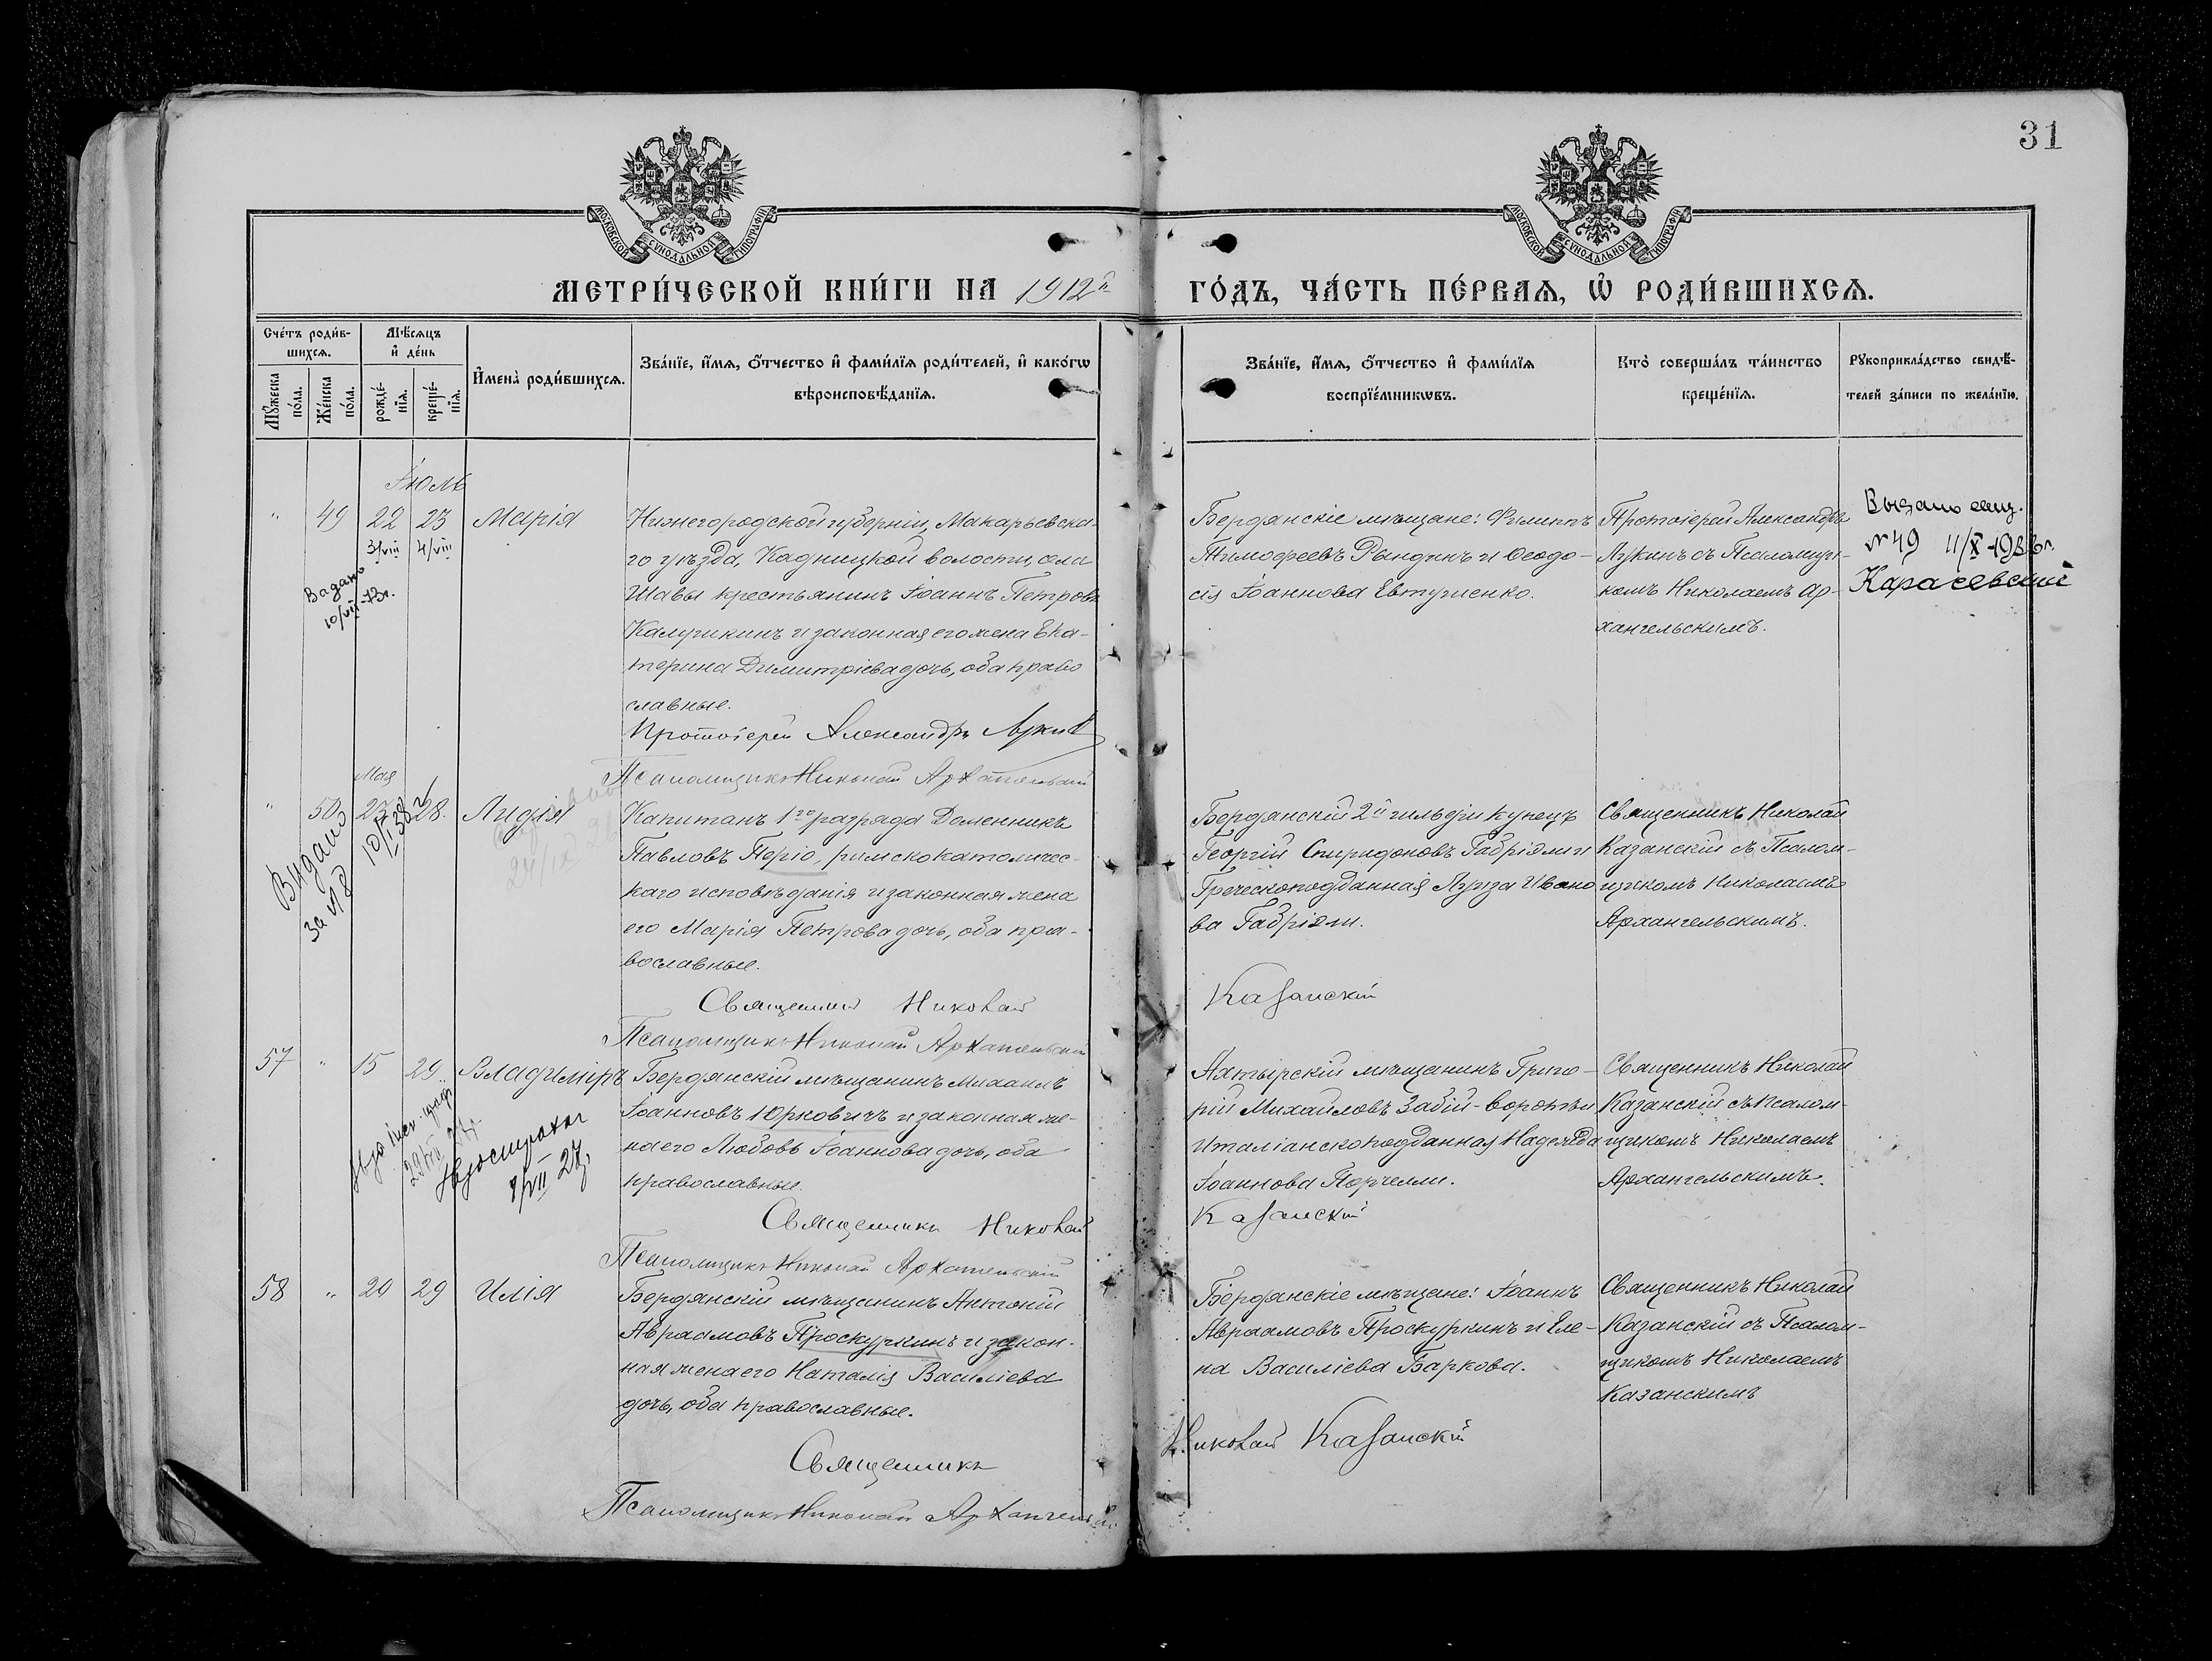 31
МОСКОВСКОЙ СѴНОДАЛЬНОЙ ТИПОГРАФІИ
МОСКОВСКОЙ СѴНОДАЛЬНОЙ ТИПОГРАФІИ
МЕТРИ́ЧЕСКОЙ КНИ́ГИ НА 1912й ГО́ДЪ, ЧА́СТЬ ПЕ́РВАѦ, Ѡ҆ РОДИ́ВШИХСѦ.
Сче́тъ роди́в-
шихсѧ.
Мѹ́жеска по́ла.
Же́нска по́ла.
Мѣ́сѧцъ
и҆ де́нь
рожде́-
нїѧ.
креще́-
нїѧ.
И҆мена̀ роди́вшихсѧ.
Зва́нїе, и҆́мѧ, ѻ҆́тчество и҆ фами́лїѧ роди́телей, и҆ како́гѡ
вѣроисповѣ́данїѧ.
Зва́нїе, и҆́мѧ, ѻ҆́тчество и҆ фами́лїѧ
воспрїе́мникѡвъ.
Кто̀ соверша́лъ та́инство
креще́нїѧ.
Рѹкоприкла́дство свидѣ́-
телей за́писи по жела́нїю.
Іюль
" 49 22 23 Марія
3/VIII 4/VIII
Нижегородской губерніи, Макарьевска-
го уѣзда, Кадницкой волости, села
Шавы крестьянинъ Іоаннъ Петровъ
Калушкинъ и законная его жена Ека-
терина Димитріева дочь, оба право
славные.
Протоіерей Александръ Лукин
Псаломщикъ Николай Архангельский
Бердянскіе мѣщане: Филиппъ
Тимофеевъ Рындинъ и Ѳеодо-
сія Іоаннова Евтушенко.
Протоіерей Александръ
Лукинъ съ Псаломщи-
комъ Николаемъ Ар-
хангельскимъ.
Выдано свид.
№ 49 11/X
Карасевский
Мая
" 50 23 28. Лидія
Выдано
за № 8
Капитанъ 1го разряда Доменникъ
Павловъ Періо, римскокатоличес-
каго исповѣданія и законная жена
его Марія Петрова дочь, оба пра-
вославные.
Священник Николай
Казанскій
Псаломщикъ Николай Архангельскій
Бердянскій 2й гильдіи купецъ
Георгій Спиридоновъ Габріэли и
Греческоподданная Луиза Ивано
ва Габріэли.
Священникъ Николай
Казанскій съ Псалом-
щикомъ Николаемъ
Архангельскимъ.
57 " 15 29 Владиміръ
Бердянскій мѣщанинъ Михаилъ
Іоанновъ Юрковичъ и законная же-
на его Любовь Іоаннова дочь, оба
православные.
Священникъ Николай
Казанскій
Псаломщикъ Николай Архангельскій
Ахтырскій мѣщанинъ Григо-
рій Михайловъ Забій-воротъ и
Италіанскоподданная Надежда
Іоаннова Порчелли.
Священникъ Николай
Казанскій съ Псалом-
щикомъ Николаемъ
Архангельскимъ.
58 " 20 29 Илія
Бердянскій мѣщанинъ Антоній
Авраамовъ Проскуркинъ и закон-
ная жена его Наталія Василіева
дочь, оба православные.
Священникъ
Николай Казанскій
Псаломщикъ Николай Архангельскій
Бердянскіе мѣщане: Іоаннъ
Авраамовъ Проскуркинъ и Еле-
на Василіева Баркова.
Священникъ Николай
Казанскій съ Псалом-
щикомъ Николаемъ
Казанскимъ